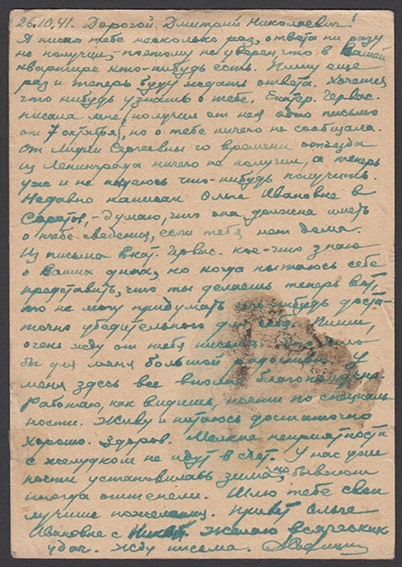 26.10.41. Дорогой Дмитрий Николаевич!
Я писал тебе несколько раз, ответа ни разу
не получил, поэтому не уверен, что в Вашей
квартире кто-нибудь есть. Пишу еще
раз и теперь буду ждать ответа. Хочется
что нибудь узнать о тебе. Екатер. Гервас.
писала мне, получил от нея одно письмо
от 7 октября, но о тебе ничего не сообщала.
От Лидии Сергеевны со времени отъезда
из Ленинграда ничего не получил, а теперь
уж и не надеюсь что-нибудь получить.
Недавно написал Ольге Ивановне в
Саратов, - думаю, что она должна иметь
о тебе сведения, если тебя нет дома.
Из письма Екат. Гервас. кое-что знаю
о Ваших днях, но когда пытаюсь себе
представить, что ты делаешь теперь
то не могу придумать нибудь доста-
точно убедительного Пиши,
очень жду от тебя письма.
бы для меня большой радостью. У
меня здесь все вполне благополучно
Работаю, как видишь, почти по специаль-
ности. Живу и питаюсь достаточно
хорошо. Здоров. Мелкие неприятности
с желудком не идут в счет. У нас уже
почти установилась зима, но бывают
иногда оттепели. Шлю тебе свои
лучшие пожелания. Привет Ольге
Ивановне с желаю всяческих
удач. Жду письма.